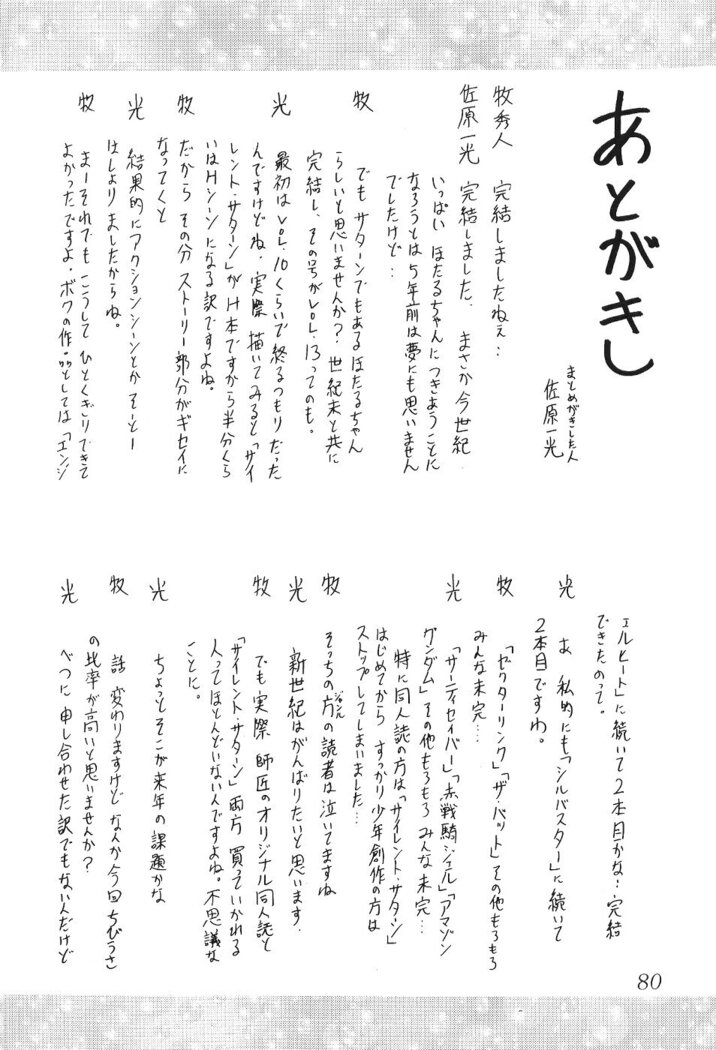 あとがき
まとめがきした人
佐原一光
牧秀人　完結しましたねぇ…
佐原一光　完結しました、まさか今世紀
いっぱい ほたるちゃんにつきあうことに
なろうとは 5年前は夢にも思いません
でしたけど…
牧　でも サターンでもある ほたるちゃん
らしいと思いませんか？ 世紀末と共に
完結し、その号がVOL.13ってのも。
光　最初はVOL.10くらいで終るつもりだった
んですけどね、実際 描いてみると「サイ
レント・サターン」がH本ですから半分くら
いはHシーンになる訳ですよね。
牧　だから その分 ストーリー部分がギセイに
なってくと
光　結果的にアクションシーンとか そーとー
はしょりましたからね。
牧　まーそれでも こうして ひとくぎりできて
よかったですよ・ボクの作品としては「エンジ
ェルヒート」に続いて 2本目かな…完結
できたのって。
光　あ 私的にも「シルバスター」に続いて
2本目ですわ。
牧　「セクターリンク」「ザ・バット」その他もろもろ
みんな未完…
光　「サーティセイバー」「赤戦騎ジェル」「アマゾン
ゲンダム」その他もろもろ みんな未完…
特に同人誌の方は「サイレント・サターン」
はじめてから すっかり少年創作の方は
ストップしてしまいました…
牧　そっちの方の読者は泣いてますね
光　新世紀はがんばりたいと思います．
牧　でも実際 師匠のオリジナル同人誌と
「サイレント・サターン」両方 買っていかれる
人ってほとんどいないんですよね。不思議な
ことに。
光　ちょっとそこが来年の課題かな
牧　話 変わりますけど なんか今回 ちびうさ
の比率が高いと思いませんか？
光　べつに 申し合わせた訳でもないんだけど
80